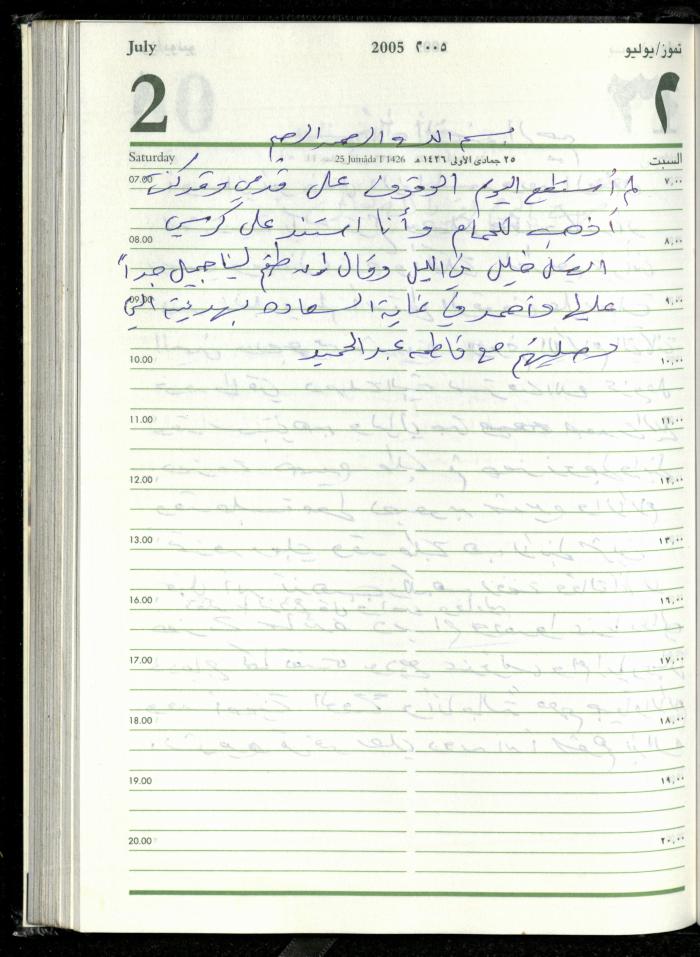 July 2005 ٢٠٠٥ تموز/يوليو
2 ٢
بسم الله الرحمن الرحيم
Saturday 25 Jumâda I 1426 ٢٥ جمادى الأولى ١٤٢٦ هـ السبت
07.00 لم أستطع اليوم الوقوف على قدمي وقد كنت ٧,٠٠
أذهب للحمام وأنا استند على كرسي
08.00 ٨,٠٠
اتصل خليل في الليل وقال طقم لينا جميل جداً
09.00 عليها وأحمد في غاية السعادة بهديته التي ٩,٠٠
وصلتهم مع فاطمه عبد الحميد
10.00 ١٠,٠٠
11.00 ١١,٠٠
12.00 ١٢,٠٠
13.00 ١٣,٠٠
16.00 ١٦,٠٠
17.00 ١٧,٠٠
18.00 ١٨,٠٠
19.00 ١٩,٠٠
20.00 ٢٠,٠٠